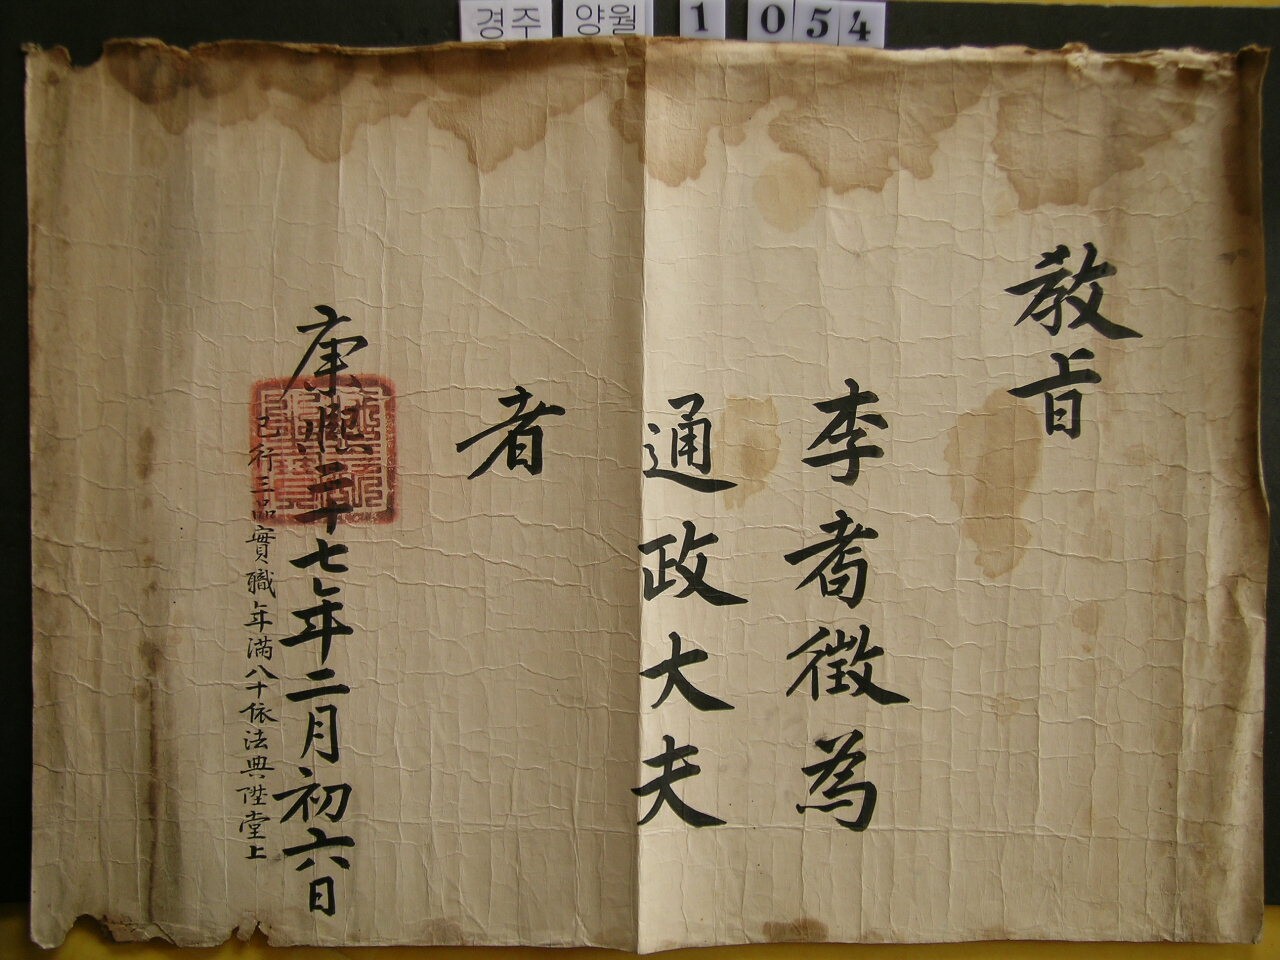 경주 양월 1 054
敎旨
李耈徵爲
通政大夫
者
康熙三十七年二月初六日
已行三品實職年滿八十依法典陞堂上